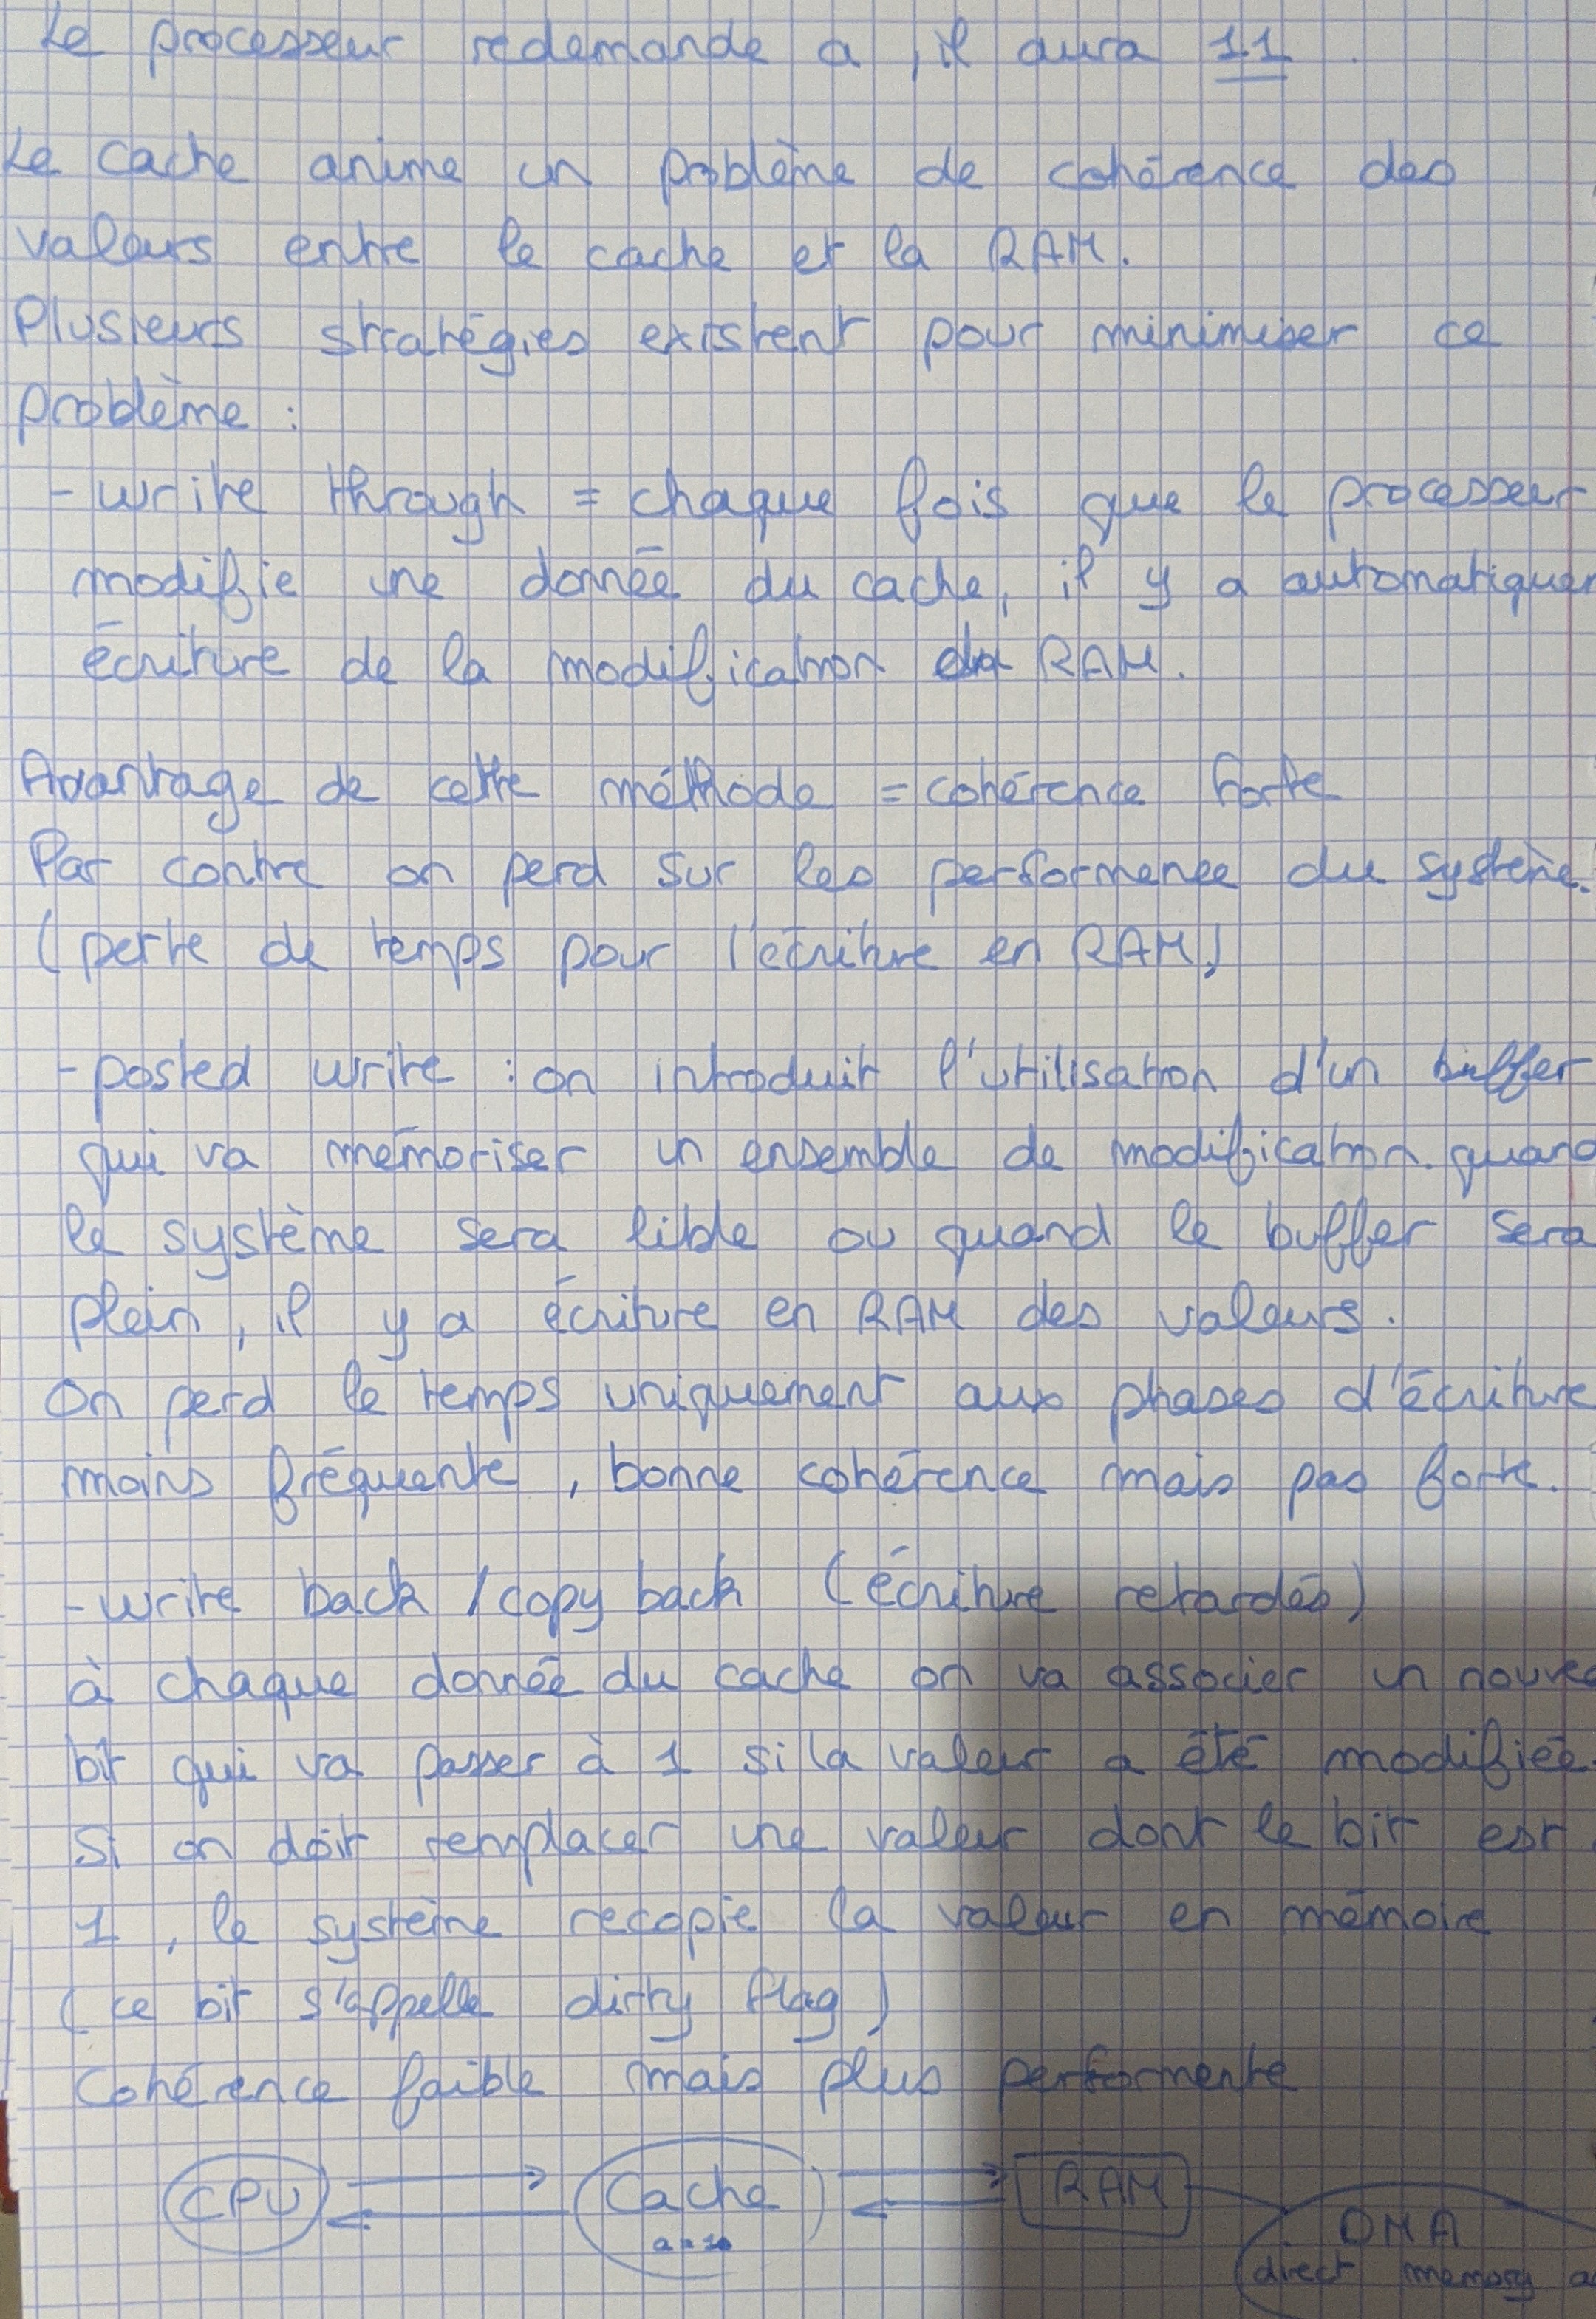 Le processeur redemande a, il aura 11.
Le cache anime un problème de cohérence des
valeurs entre le cache et la RAM.
Plusieurs stratégies existent pour minimiser ce
problème :
- write through = chaque fois que le processeur
modifie une donnée du cache, il y a automatiquem
écriture de la modification RAM.
Avantage de cette méthode = cohérence forte
Par contre on perd sur les performence du système.
(perte de temps pour l'écriture en RAM)
- posted write : on introduit l'utilisation d'un buffer
qui va mémoriser un ensemble de modification. quand
le système sera lible ou quand le buffer sera
plein, il y a écriture en RAM des valeurs.
On perd le temps uniquement aux phases d'écriture
moins fréquente, bonne cohérence mais pas forte.
- write back / copy back (écriture retardés)
à chaque donnée du cache on va associer un nouvea
bit qui va passer à 1 si la valeur a été modifiée.
Si on doit remplacer une valeur dont le bit est
1, le système recopie la valeur en mémoire
(ce bit s'appelle dirty flag)
Cohérence faible mais plus performente
CPU Cache RAM
a = 10 DMA
direct memory a